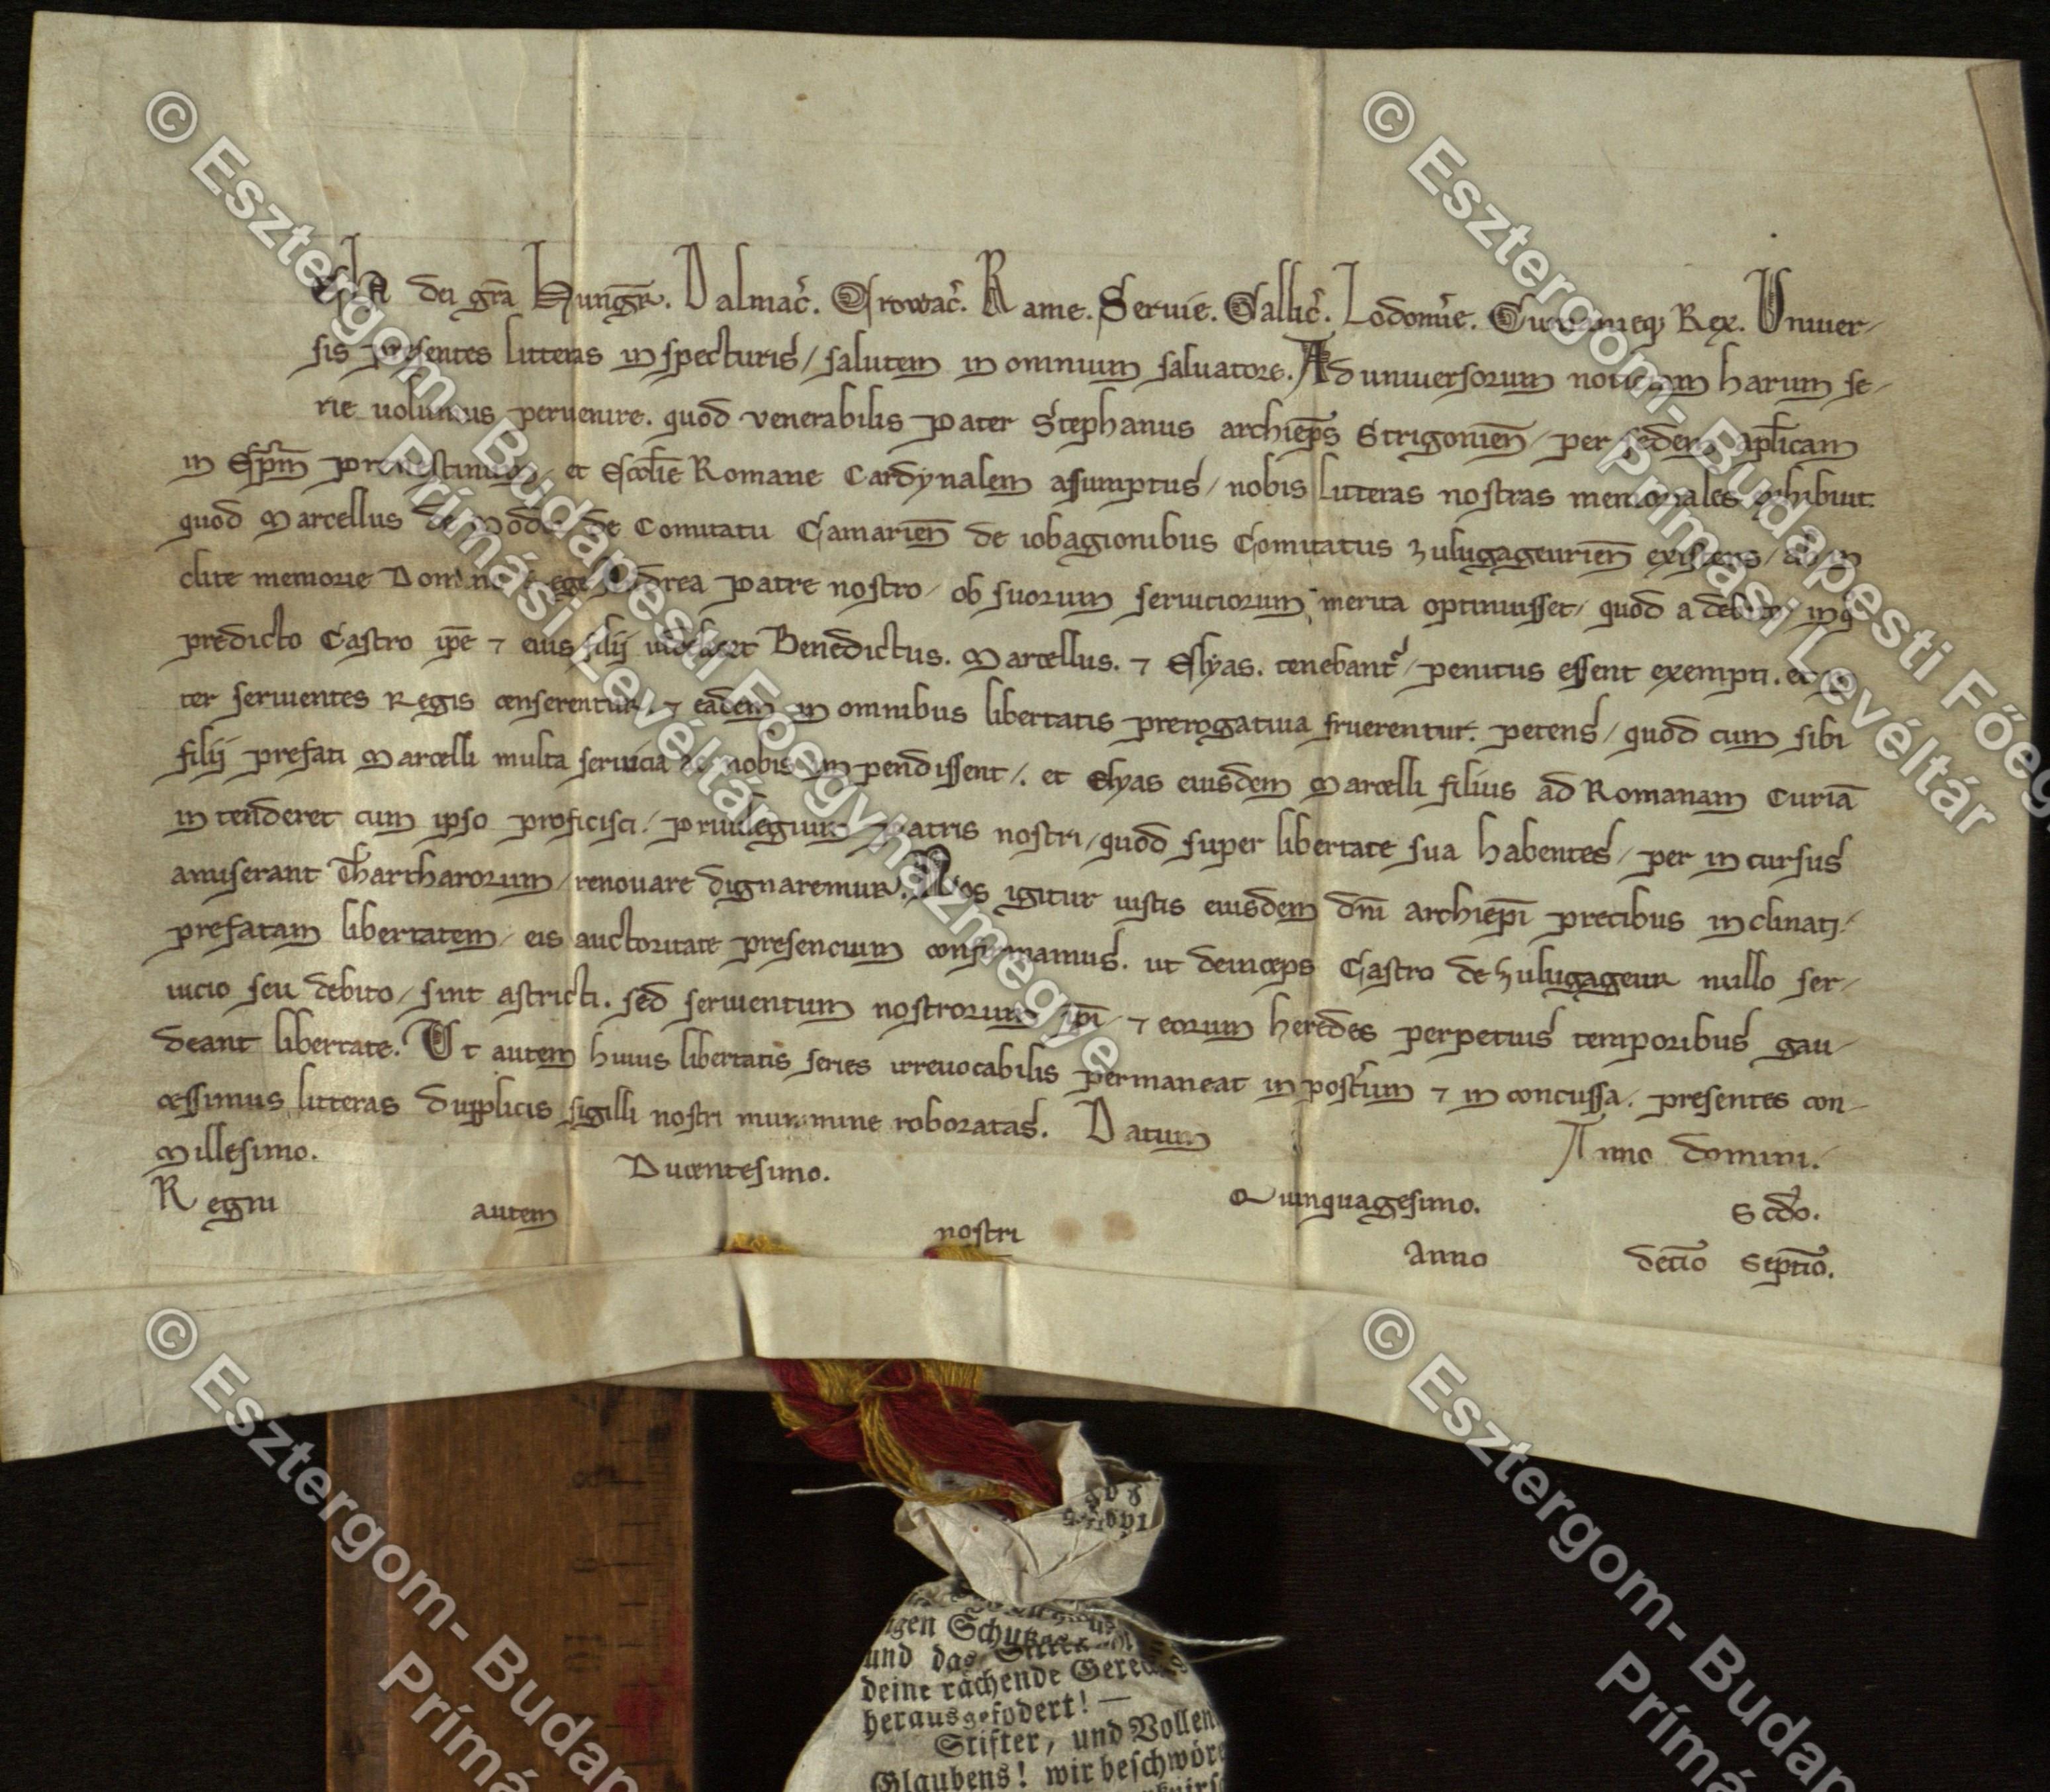 dei gr̄a Hungar̄. Dalmac̄. Crowac̄. Rame. Servie. Gallic̄. Lodom̄e. Cumanieq; Rex. Univer/
sis presentes litteras inspecturis/ salutem in omnium salvatore. Ad universorum noticiam harum se/
rie volumus pervenire. quod venerabilis pater Stephanus archiep̄s Strigonien̄/ per sedem ap̄licam
in Ep̄m Prenestinum/ et Eccl̄ie Romane Cardynalem assumptus/ nobis litteras nostras memoriales exhibuit.
quod Marcellus de de Comitatu Camarien̄ de iobagionibus Comitatus Zulugageurien̄ existens/ ab in
clite memorie Domino Rege Andrea patre nostro/ ob suorum serviciorum merita optinuisset/ quod a debito/ in q°
predicto Castro ip̄e ⁊ eius filij videlicet Benedictus. Marcellus. ⁊ Elyas. tenebant᷑/ penitus essent exempti. et in
ter servientes Regis censerentur/ ⁊ eadem in omnibus libertatis prerogativa fruerentur. petens/ quod cum sibi
filij prefati Marcelli multa servicia ac nobis impendissent/. et Elyas eiusdem Marcelli filius ad Romanam Curiā
intenderet cum ipso proficisci/ privilegium patris nostri/ quod super libertate sua habentes/ per incursus
amiserant Thartharorum/ renovare dignaremur. Nos igitur iustis eiusdem dn̄i archiep̄i precibus inclinati/
prefatam libertatem/ eis auctoritate presencium confirmamus. ut deinceps Castro de Zulugageur nullo ser/
vicio seu debito/ sint astricti. sed servientum nostrorum ip̄i/ ⁊ eorum heredes perpetuis temporibus gau/
deant libertate. Ut autem huius libertatis series irrevocabilis permaneat in post̄um ⁊ inconcussa. presentes con/
cessimus litteras dupplicis sigilli nostri munimine roboratas. Datum Anno domini.
Millesimo. Ducentesimo. Quinquagesimo. Scd̄o.
Regni autem nostri anno decīo Septīo.
© Esztergom- Budapesti Főegyházmegye
Prímási Levéltár
© Esztergom- Budapesti Főeg
Prímási Levéltár
© Esztergom- Budap
Prímá
© Esztergom- Budap
Prímá
und das
deine rächende
herausgefodert! —
Stifter, und Vollen
Glaubens! wir beschwöre